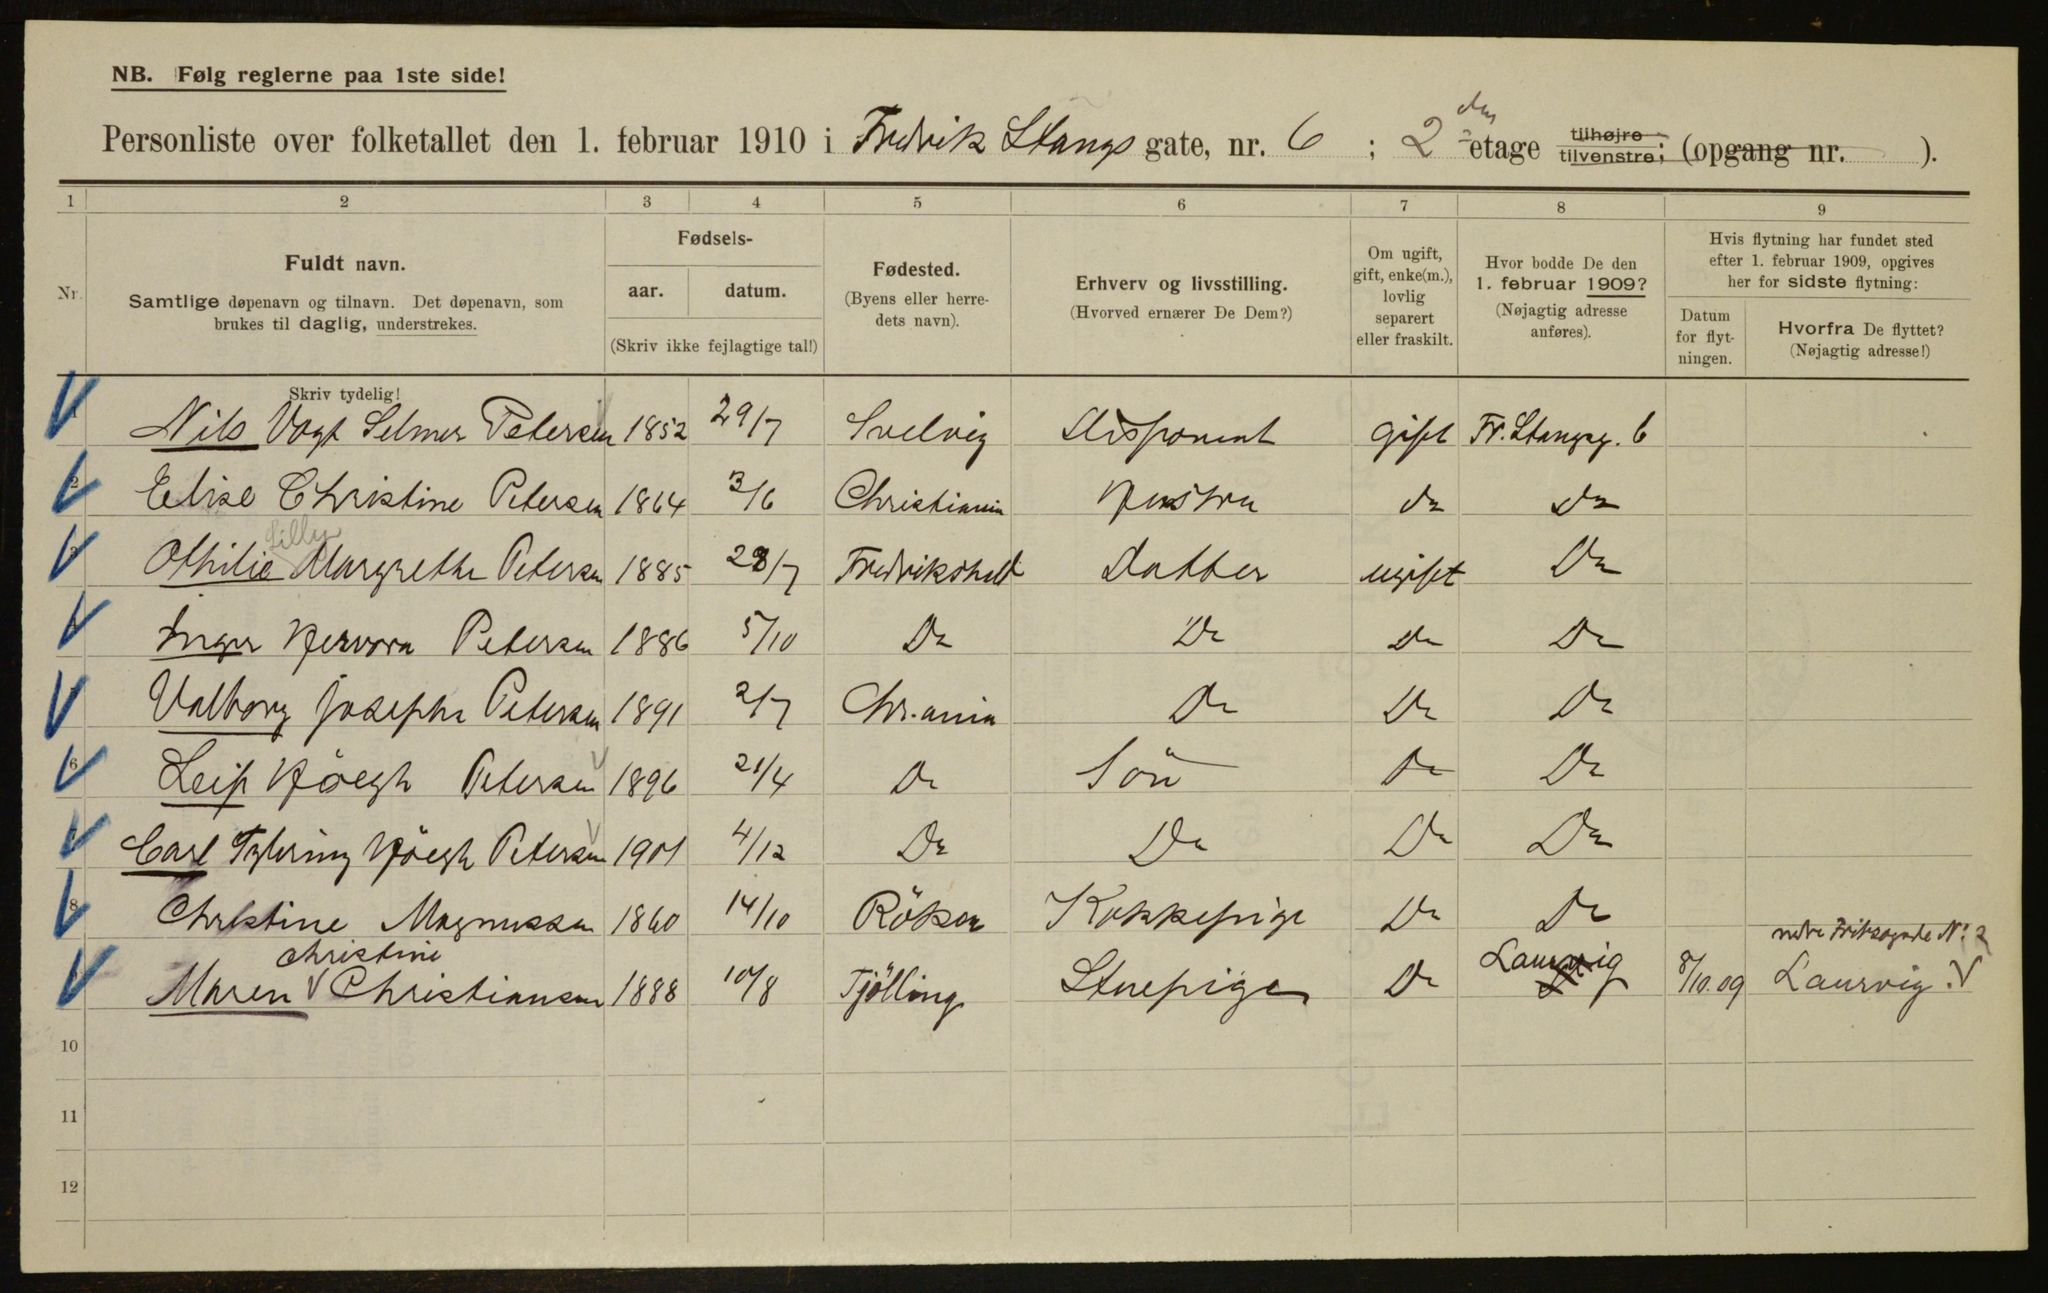 NB. Følg reglerne paa 1ste side!
Personliste over folketallet den 1. februar 1910 i Fredrik Stangs gate, nr. 6 ; 2 den etage tilhøjre tilvenstre; (opgang nr. ).
1 2 3 4 5 6 7 8 9
Nr. Fuldt navn. Samtlige døpenavn og tilnavn. Det døpenavn, som brukes til daglig, understrekes.
Fødsels- aar. datum. (Skriv ikke fejlagtige tal!)
Fødested. (Byens eller herredets navn).
Erhverv og livsstilling. (Hvorved ernærer De Dem?)
Om ugift, gift, enke(m.), lovlig separert eller fraskilt.
Hvor bodde De den 1. februar 1909? (Nøjagtig adresse anføres).
Hvis flytning har fundet sted efter 1. februar 1909, opgives her for sidste flytning:
Datum for flytningen. Hvorfra De flyttet? (Nøjagtig adresse!)
Skriv tydelig!
1 Nils Vogt Selmer Petersen 1852 29/7 Svelvig Disponent gift Fr. Stangsg. 6
2 Elise Christine Petersen 1864 3/6 Christiania Hustru do do
Lilly
3 Othilie Margrethe Petersen 1885 28/7 Fredrikshald Datter ugift Do
4 Inger Hervora Petersen 1886 5/10 Do Do Do Do
5 Valborg Josepha Petersen 1891 2/7 Chr.ania Do Do Do
6 Leif Høegh Petersen 1896 21/4 Do Sön Do Do
7 Carl Høegh Petersen 1901 4/12 Do Do Do Do
8 Christine Magnussen 1860 14/10 Röken Kokkepige Do Do
christine nedre Fritsøgade No. 2
9 Maren Christiansen 1888 10/8 Tjölling Stuepige Do Laurvig 8/10.09 Laurvig.
10
11
12